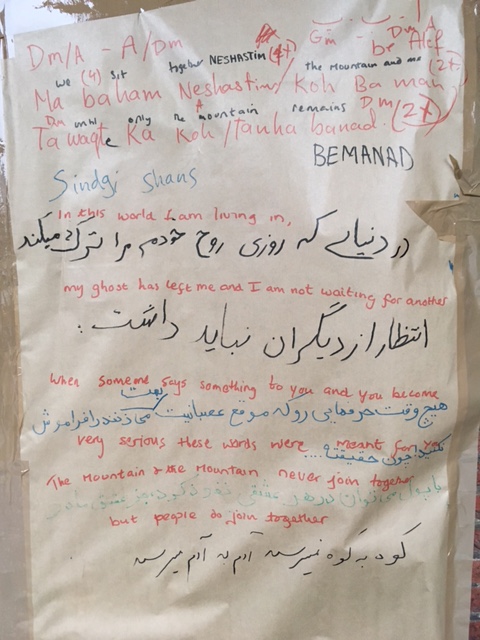 Dm/A - A/Dm Gm Dm A
be Alef
we (4) sit together NESHASTIM (4x) the Mountain and me (2x)
Ma baham Neshastim/ Koh Ba man
Dm until only the A mountain remains Dm
Ta waqte Ka Koh/Tanha banad. (2x)
BEMANAD
Sindgi shans
In this world I am living in,
در دنیایی که روزی روح خودم مرا ترک میکند
my ghost has left me and I am not waiting for another
انتظار از دیگران نباید داشت.
When someone says something to you and you become
بهت
هیچ وقت حرفهایی رو که موقع عصبانیت می زنند را فراموش
very serious these words were meant for you
نکنید چون حقیقته....
The Mountain & the Mountain never join together
but people do join together
کوه به کوه نمیرسه آدم به آدم میرسه